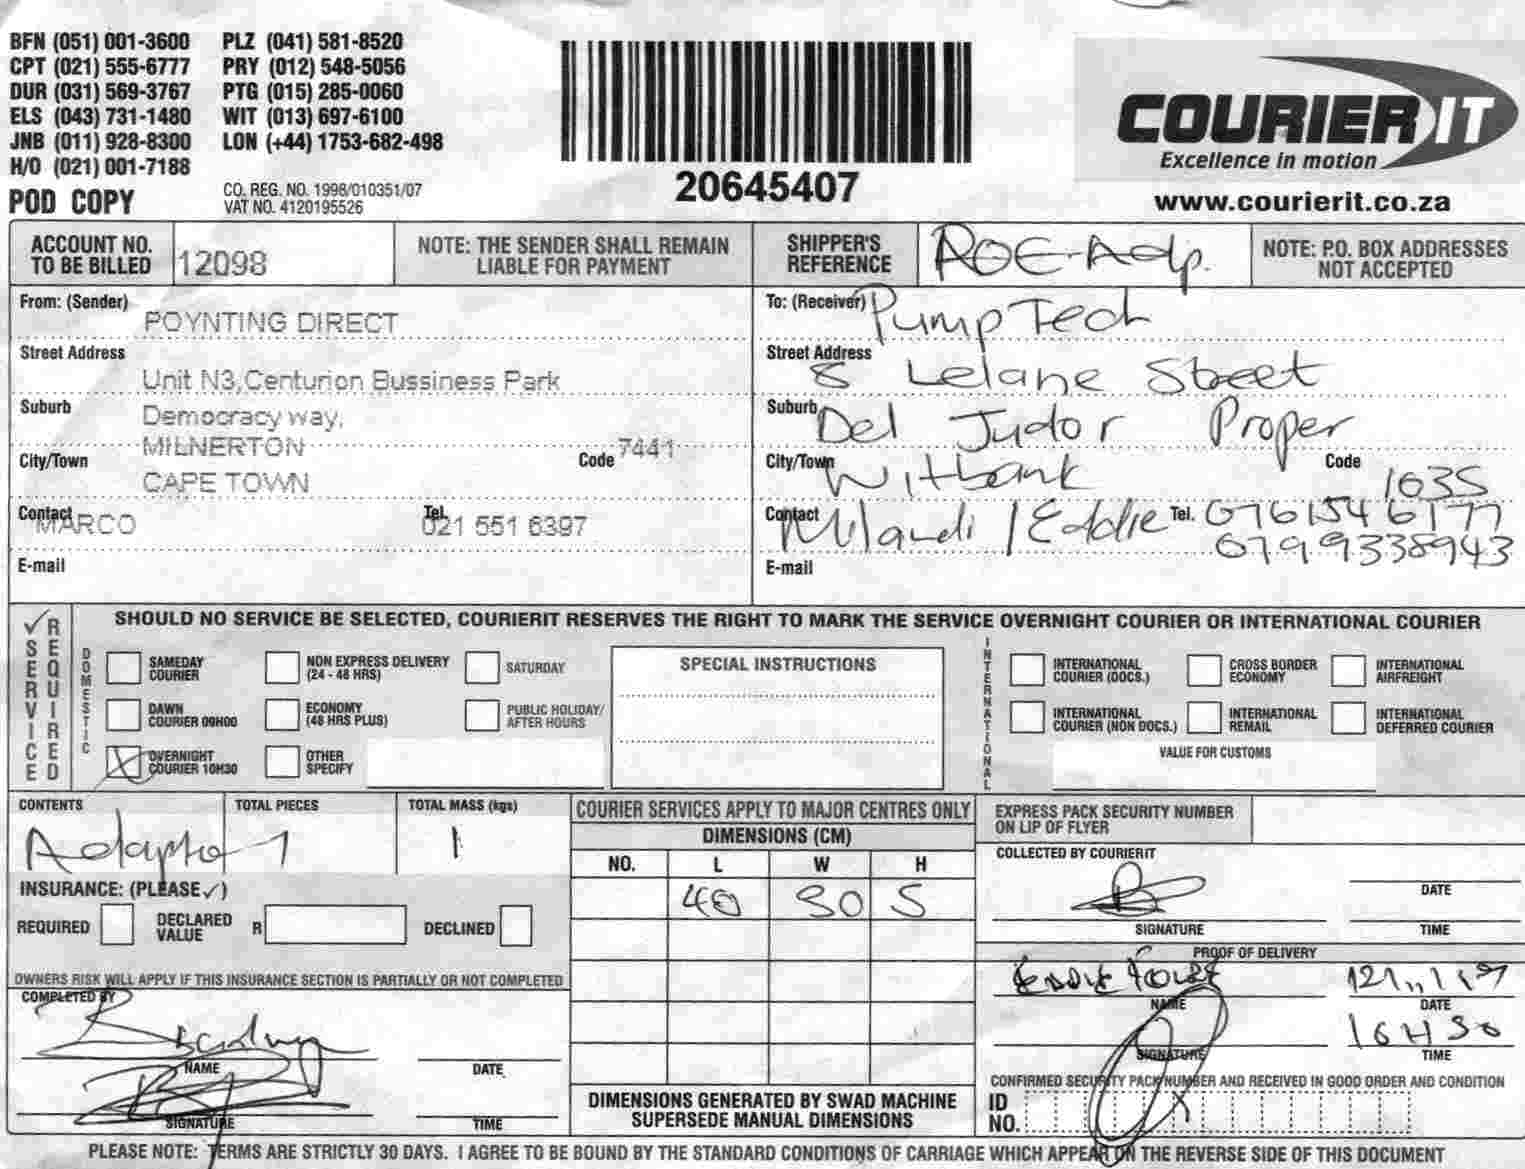 BFN (051) 001-3600 PLZ (041) 581-8520
CPT (021) 555-6777 PRY (012) 548-5056
DUR (031) 569-3767 PTG (015) 285-0060
ELS (043) 731-1480 WIT (013) 697-6100
JNB (011) 928-8300 LON (+44) 1753-682-498
H/O (021) 001-7188
POD COPY
CO. REG. NO. 1998/010351/07
VAT NO. 4120195526
20645407
COURIER IT
Excellence in motion
www.courierit.co.za
ACCOUNT NO. TO BE BILLED 12098
NOTE: THE SENDER SHALL REMAIN LIABLE FOR PAYMENT
SHIPPER'S REFERENCE ROE-Adp.
NOTE: P.O. BOX ADDRESSES NOT ACCEPTED
From: (Sender) POYNTING DIRECT
Street Address Unit N3,Centurion Bussiness Park
Suburb Democracy way,
MILNERTON
City/Town CAPE TOWN Code 7441
Contact MARCO Tel. 021 551 6397
E-mail
To: (Receiver) Pump Tech
Street Address 8 Lelane Street
Suburb Del Judor Proper
City/Town Witbank Code 1035
Contact Milandi / Eddie Tel. 0761546177
0799338943
E-mail
✓ SERVICE REQUIRED
SHOULD NO SERVICE BE SELECTED, COURIERIT RESERVES THE RIGHT TO MARK THE SERVICE OVERNIGHT COURIER OR INTERNATIONAL COURIER
DOMESTIC
SAMEDAY COURIER
NON EXPRESS DELIVERY (24 - 48 HRS)
SATURDAY
DAWN COURIER 09H00
ECONOMY (48 HRS PLUS)
PUBLIC HOLIDAY/ AFTER HOURS
X OVERNIGHT COURIER 10H30
OTHER SPECIFY
SPECIAL INSTRUCTIONS
INTERNATIONAL
INTERNATIONAL COURIER (DOCS.)
CROSS BORDER ECONOMY
INTERNATIONAL AIRFREIGHT
INTERNATIONAL COURIER (NON DOCS.)
INTERNATIONAL REMAIL
INTERNATIONAL DEFERRED COURIER
VALUE FOR CUSTOMS
CONTENTS TOTAL PIECES TOTAL MASS (kgs)
1 1
INSURANCE: (PLEASE ✓)
REQUIRED DECLARED VALUE R DECLINED
OWNERS RISK WILL APPLY IF THIS INSURANCE SECTION IS PARTIALLY OR NOT COMPLETED
COMPLETED BY
NAME DATE
SIGNATURE TIME
COURIER SERVICES APPLY TO MAJOR CENTRES ONLY
DIMENSIONS (CM)
NO. L W H
40 30 5
DIMENSIONS GENERATED BY SWAD MACHINE SUPERSEDE MANUAL DIMENSIONS
EXPRESS PACK SECURITY NUMBER ON LIP OF FLYER
COLLECTED BY COURIERIT
DATE
SIGNATURE TIME
PROOF OF DELIVERY
EDDIE
NAME DATE
16H30
SIGNATURE TIME
CONFIRMED SECURITY PACK NUMBER AND RECEIVED IN GOOD ORDER AND CONDITION
ID NO.
PLEASE NOTE: TERMS ARE STRICTLY 30 DAYS. I AGREE TO BE BOUND BY THE STANDARD CONDITIONS OF CARRIAGE WHICH APPEAR ON THE REVERSE SIDE OF THIS DOCUMENT